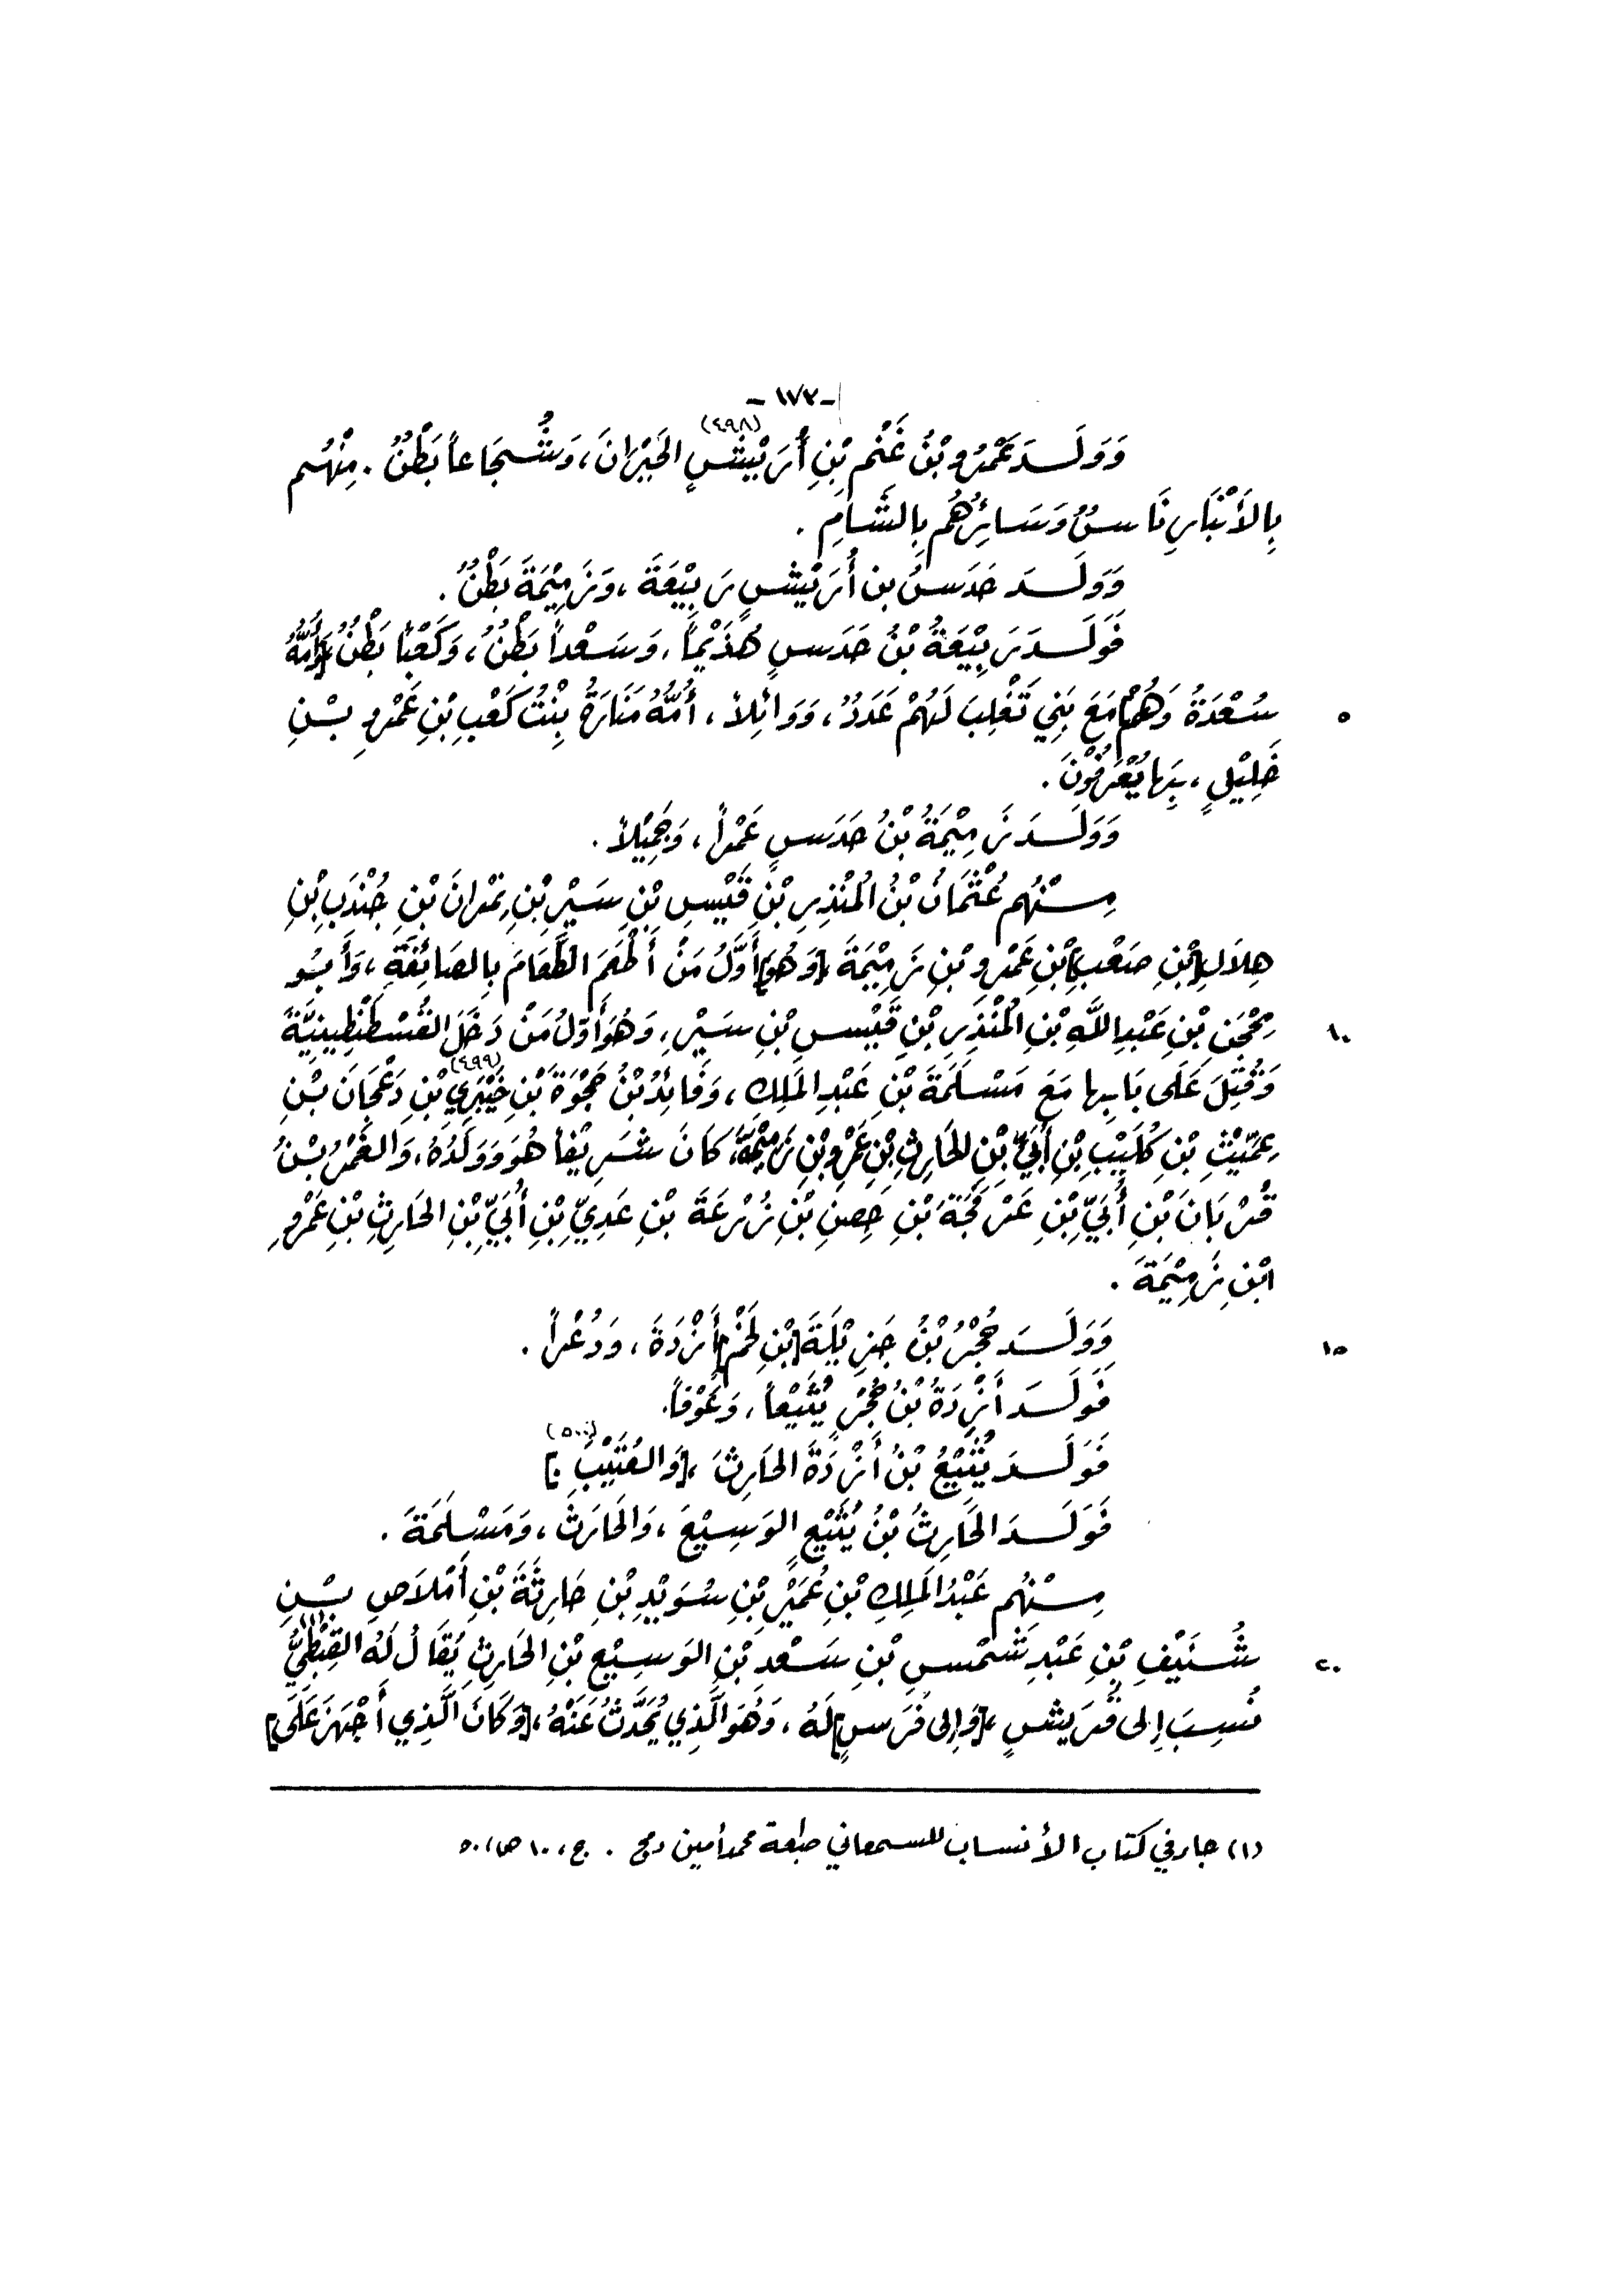 -١٧٢-
وَوَلَدَ عَمْرُو بْنُ غَنْمِ بْنِ أُرَيْشٍ (٤٩٨) الحَيْرَانَ، وَشُجَاعاً بَطْنٌ. مِنْهُم
بِالأَنْبَارِ نَاسٌ وَسَائِرُهُم بِالشَّامِ.
وَوَلَدَ حَدَسُ بن أُرَيْشٍ رَبِيْعَةَ، وَزَمِيْمَةَ بَطْنٌ.
فَوَلَدَ رَبِيْعَةُ بْنُ حَدَسٍ هُذَيْماً، وَسَعْداً بَطْنٌ، وَكَعْباً بَطْنٌ [وَأُمُّهُ
سُعْدَةُ وَهُمْ] مَعَ بَنِي تَغْلِبَ لَهُمْ عَدَدٌ، وَوَائِلاً، أُمُّهُ مَنَارَةُ بِنْتُ كَعْبِ بْنِ عَمْرِو بْنِ
٥
خَلِيْلٍ، بِهَا يُعْرَفُوْنَ.
وَوَلَدَ زَمِيْمَةُ بْنُ حَدَسٍ عَمْراً، وَجَمِيْلاً.
مِنْهُم عُثْمَانُ بْنُ الْمُنْذِرِ بْنِ قَيْسِ بْنِ سَيْرِ بْنِ نِمْرانَ بْنِ جُنْدَبِ بْنِ
هِلَالِ [بْنِ صَعْبِ] بْنِ عَمْرِو بْنِ زَمِيْمَةَ [وَهُوَ] أَوَّلُ مَنْ أَطْعَمَ الطَّعَامَ بِالصَائِفَةِ، وَأَبُو
مِحْجَنِ بْنِ عَبْدِ اللَّهِ بْنِ الْمُنْذِرِ بْنِ قَيْسِ بْنِ سَيْرٍ، وَهُوَ أَوَّلُ مَنْ دَخَلَ القُسْطَنْطِينِيَّةَ
١٠
وَقُتِلَ عَلَى بَابِها مَعَ مَسْلَمَةَ بْنِ عَبْدِ المَلِكِ، وَقَائِدُ بْنُ حُجْوَةَ بْنِ خَيْبَرِي (٤٩٩) بْنِ دَعْجَانَ بْنِ
عِمِّيْثِ بْنِ كُلَيْبِ بْنِ أُبَيِّ بْنِ الحَارِثِ بْنِ عَمْرِو بْنِ زَمِيْمَةَ، كَانَ شَرِيْفاً هُوَ وَوَلَدُهُ، وَالغَمْرُ بْنُ
قُرْبَانَ بْنِ أُبَيِّ بْنِ عَرْفَجَةَ بْنِ حِصنِ بْنِ زُرْعَةَ بْنِ عَدِيِّ بْنِ أُبَيِّ بْنِ الحَارِثِ بْنِ عَمْرِو
ابْنِ زَمِيْمَةَ.
وَوَلَدَ حُجْرُ بْنُ جَزِيْلَةَ [بْنِ لَخْمٍ] أَزْدَةَ، وَدُعْراً.
١٥
فَوَلَدَ أَزْدَةُ بْنُ حُجْرٍ يُثَيْعاً، وَعَوْفاً.
فَوَلَدَ يُثَيْعُ بْنُ أَزْدَةَ الحَارِثَ، [وَالعُتَيْبَ.] (٥٠٠)
فَوَلَدَ الحَارِثُ بْنُ يُثَيْعٍ الوَسِيْعَ، وَالحَارَثَ، وَمَسْلَمَةَ.
مِنْهُم عَبْدُ المَلِكِ بْنِ عُمَيْرِ بْنِ سُوَيْدِ بْنِ حَارِثَةَ بْنِ أَمْلاَصِ بْنِ
شُنَيْفِ بْنِ عَبْدِ شَمْسِ بْنِ سَعْدِ بْنِ الوَسِيْعِ بْنِ الحَارِثِ يُقَالُ لَهُ القِبْطِيُّ (١)
٢٠
نُسِبَ إِلى قُرَيشٍ، [وَإِلى فَرَسٍ] لَهُ، وَهُوَ الَّذِي يُحَدَّثُ عَنْهُ، [وَكَانَ الَّذِي أَجْهَزَ عَلَى]
(١) جاء في كتاب الأنساب للسمعاني طبعة محمد أمين دمج . ج، ١٠ ص، ٥٠